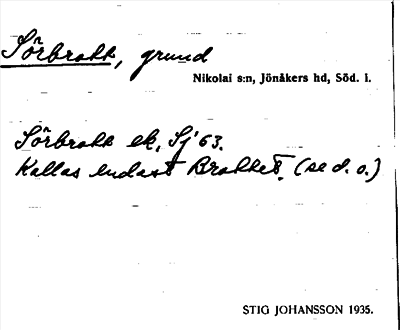 Sörbrakk, grund
Nikolai s:n, Jönåkers hd, Söd. l.
Sörbrakk ek, Sj 63.
Kallas endast Brakket. (se d. o.)
STIG JOHANSSON 1935.